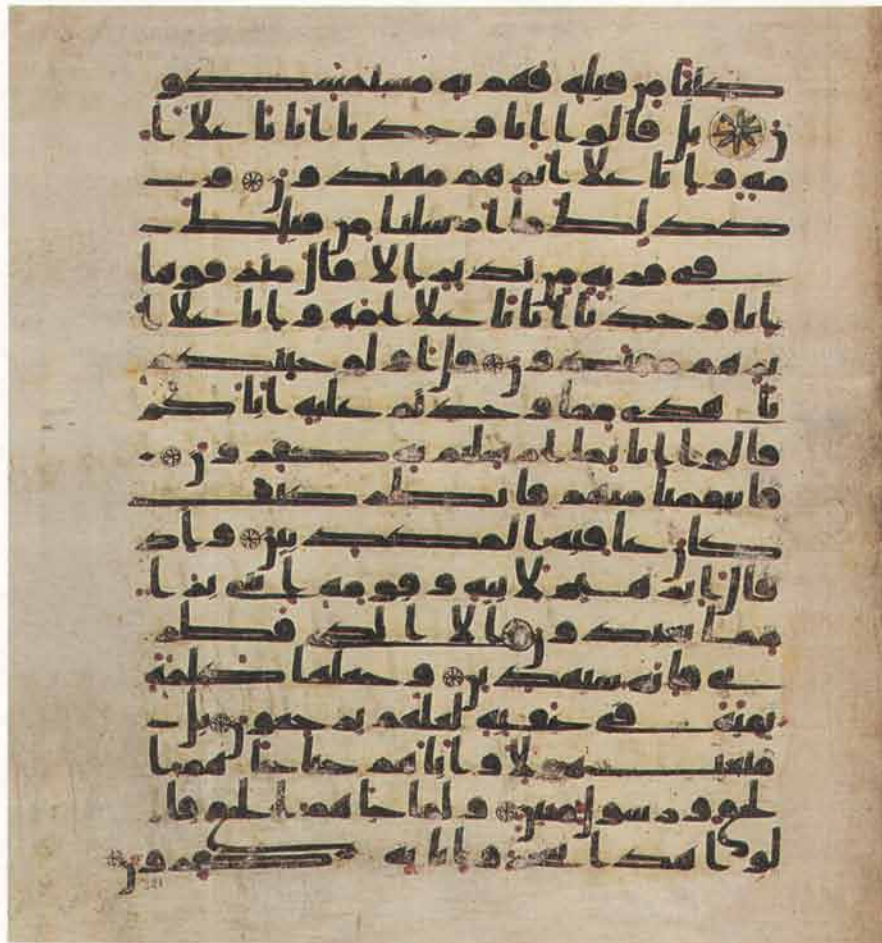 كتبا من قبله فهم به مستمسكو
ن بل قالوا انا وجدنا ابانا على ا
مة وانا على اثرهم مهتدون و
كذلك ما ارسلنا من قبلك
في قرية من نذير الا قال مترفوها
انا وجدنا ابانا على امة وانا على ا
ثرهم مقتدون قل اولو جيتكم
باهدى مما وجدتم عليه اباكم
قالوا انا بما ارسلتم به كفرون
فانتقمنا منهم فانظر كيف
كان عقبة المكذبين واذ
قال ابرهيم لابيه وقومه انني برا
مما تعبدون الا الذي فطر
ني فانه سيهدين وجعلها كلمة
بقية في عقبه لعلهم يرجعون بل
متعت هولا واباهم حتى جاهم ا
لحق ورسول مبين ولما جاهم الحق قا
لوا هذا سحر وانا به كفرون